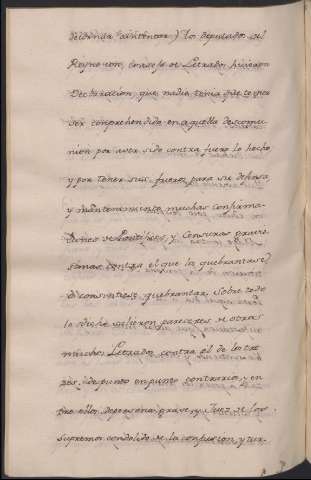 de la misma sentencia) los Deputados del
Reyno con consejo de Letrados hicieron
Declaracion, que nadie tenia que temer
ser comprehendido en aquella descomu-
nion por aver sido contra fuero lo hecho
y por tener sus fueros para su defensa
y mantenimiento muchas confirma-
ciones de Pontifices, y Censuras gravi-
simas contra el que los quebrantase
ò consintiese quebrantar. Sobre todo
lo dicho salieron pareceres de otros
muchos Letrados contra el de los tre
zes, de punto en punto contrarios, en
tre ellos de persona grave y Juez de los
supremos condolido de la confusion y tur-